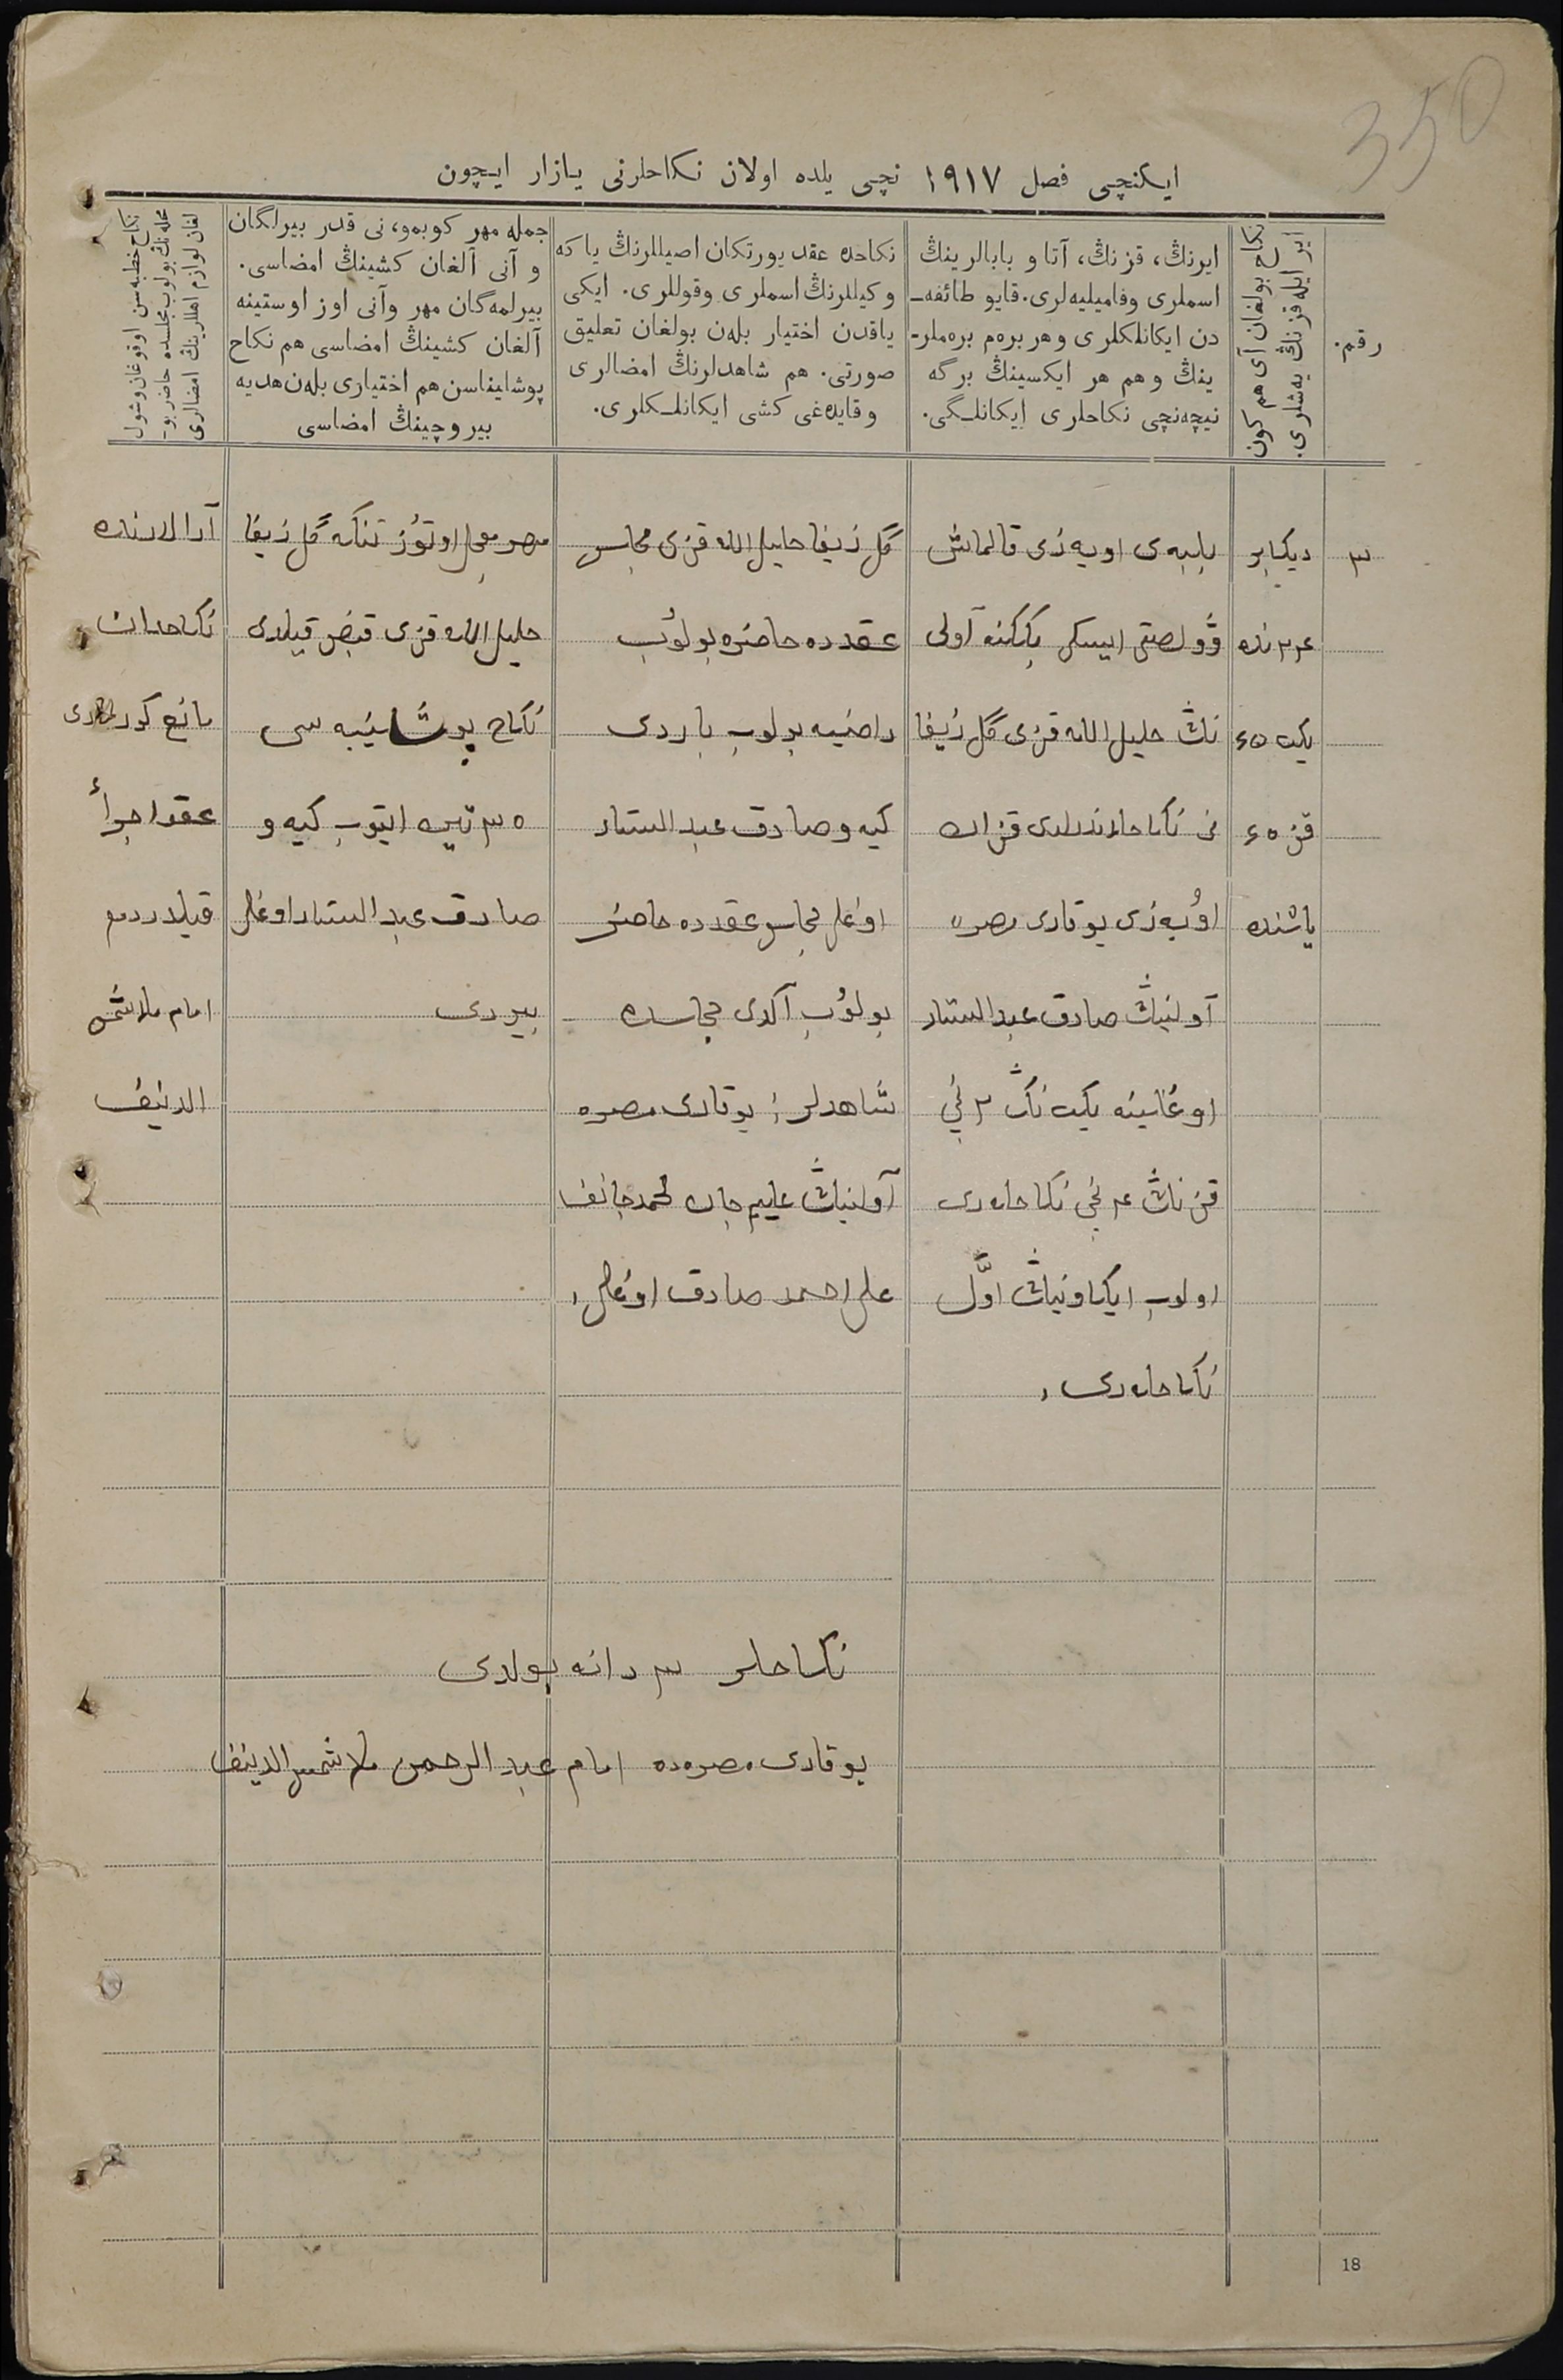 350
ایکنچی فصل ١٩١٧ نچی یلده اولان نکاحلرنی یازار ایچون
رقم.
نکاح بولغان آی هم کون
ایر ایله قزنڭ یه‌شلری.
ایرنڭ، قزنڭ، آتا و بابالرینڭ
اسملری وفامیلیه‌لری. قایو طائفه‌ـ
دن ایکانلکلری وهر بره‌م بره‌ملرـ
ینڭ و هم هر ایکسینڭ برگه
نیچه‌نچی نکاحلری ایکانلـگی.
نکاحده عقد یورتکان اصیللرنڭ یا که
وکیللرنڭ اسملری وقوللری. ایکی
یاقدن اختیار بله‌ن بولغان تعلیق
صورتی. هم شاهدلرنڭ امضالری
وقایده‌غی کشی ایکانلـکلری.
جمله مهر کوبمو، نی قدر بیرلگان
و آنی آلغان کشینڭ امضاسی.
بیرلمه‌گان مهر وآنی اوز اوستینه
آلغان کشینڭ امضاسی هم نکاح
پوشایناسن هم اختیاری بله‌ن هدیه
بیروچینڭ امضاسی
نکاح خطبه‌سن اوقوغان وشول
محله‌نڭ بولوب مجلسده حاضر بوـ
لغان لوازم اهللرینڭ امضالری
٣
دیکابر
٢٤ نده
یکت ٤٥
قز ٤٥
یاشنده
بلبه‌ی اویه‌زی قالماش
وولصتی ایسکی بککنه آولی
نڭ خلیل الله قزی گل زیفا
نی نکاحلاندلدی قزان
اویه‌زی یوقاری مصره
آولنیڭ صادق عبد الستار
اوغلینه یکت نڭ ٢ نچی
قز نڭ ٤ نچی نکاحلردی
اولوب ایکاونیڭ اوّل
نکاحلردی،
گل زیفا خلیل الله قزی مجلس
عقدده حاضره بولوب
راضیه بولوب باردی
کیه‌و صادق عبد الستار
اوغلی مجلس عقدده حاضر
بولوب آلدی مجلسده
شاهدلر؛ یوقاری مصره
آولنیڭ علیم جان محمد جانف
علی احمد صادق اوغلی،
مهر معجل اوتوز تنکه گل زیفا
خلیل الله قزی قبض قیلدی
نکاح پوشاینیه سی
٣٥ تیین ایتوب کیه‌و
صادق عبد الستار اوغلی
بیردی
آرالارنده
نکاحدان
مانع کورلمادی
عقد اجرأ
قیلدردم
امام ملا شمس
الدینف
نکاحلر ٣ دانه بولدی
یوقاری مصره‌ده امام عبد الرحمن ملا شمس الدینف
18